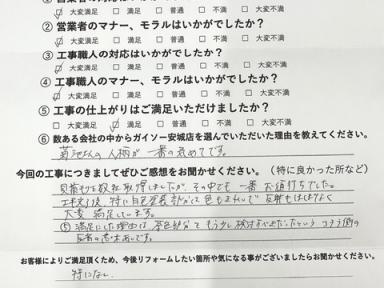 ① 営業者の対応はいかがでしたか？
☑ 大変満足 □ 満足 □ 普通 □ 不満 □ 大変不満
② 営業者のマナー、モラルはいかがでしたか？
☑ 大変満足 □ 満足 □ 普通 □ 不満 □ 大変不満
③ 工事職人の対応はいかがでしたか？
☑ 大変満足 □ 満足 □ 普通 □ 不満 □ 大変不満
④ 工事職人のマナー、モラルはいかがでしたか？
☑ 大変満足 □ 満足 □ 普通 □ 不満 □ 大変不満
⑤ 工事の仕上がりはご満足いただけましたか？
□ 大変満足 ☑ 満足 □ 普通 □ 不満 □ 大変不満
⑥ 数ある会社の中からガイソー安城店を選んでいただいた理由を教えてください。
菊池さんの人柄が一番の決めてです。
今回の工事につきましてぜひご感想をお聞かせください。（特に良かった所など）
見積りを数社取得しましたが、その中でも一番お値打ちでした。
工事完了後、特に
大変満足しています。
⑤ 満足にした理由は
お客様によりご満足頂くため、今後リフォームしたい箇所や気になる事がございましたらお聞かせください。
特になし